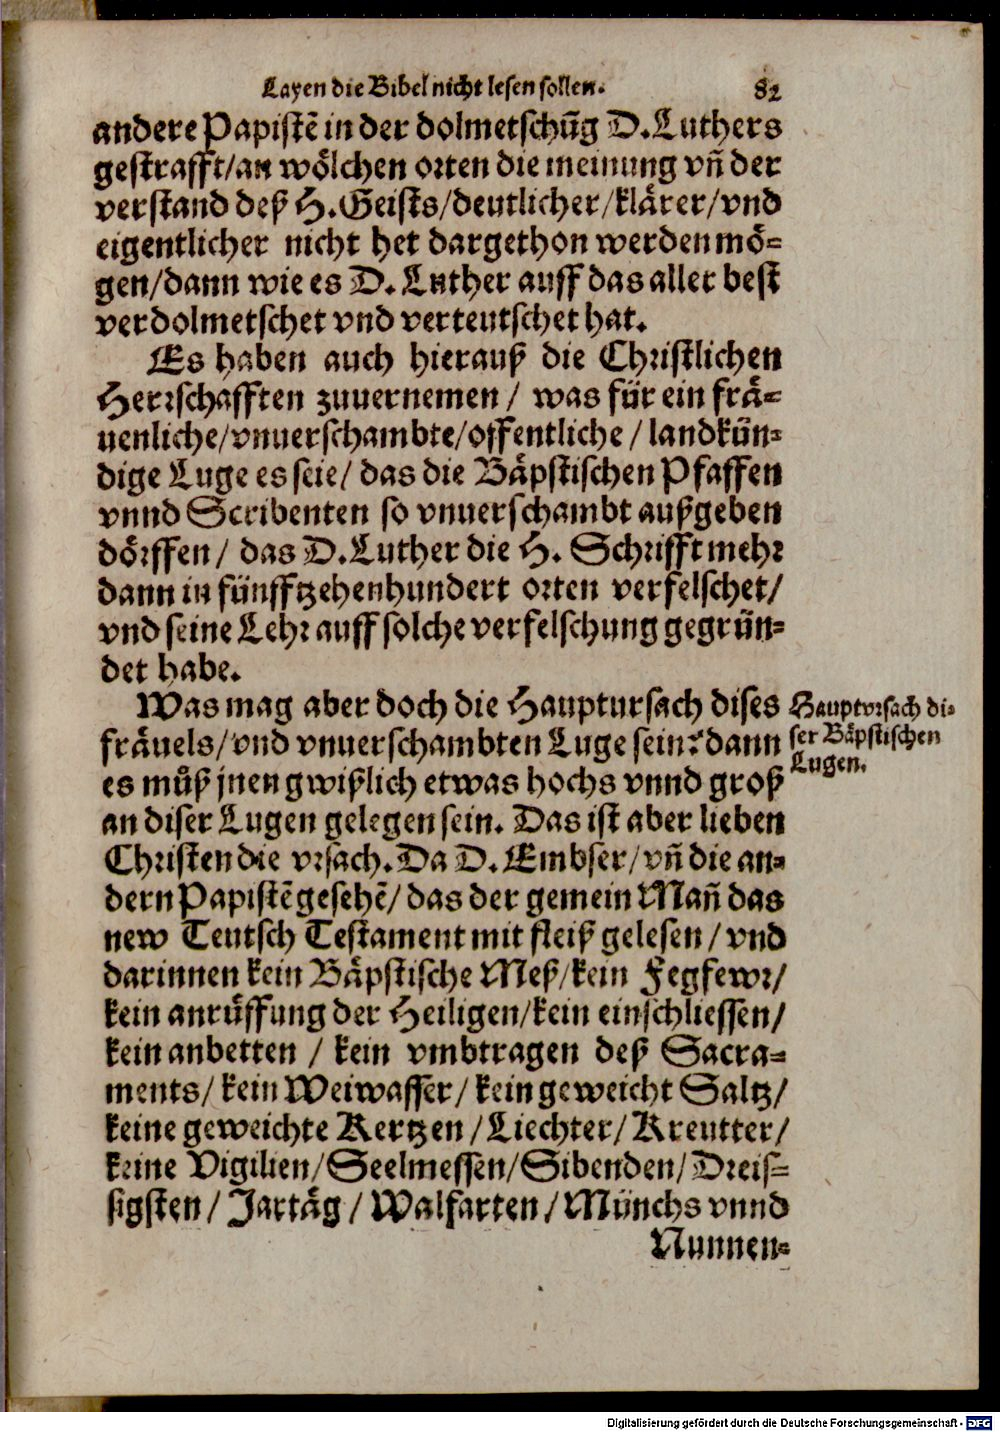 Layen die Bibel nicht lesen sollen. 82
andere Papistē in der dolmetschūg D. Luthers
gestrafft/ an wölchen orten die meinung vñ der
verstand deß H. Geists/ deutlicher/ klärer/ vnd
eigentlicher nicht het dargethon werden mö=
gen/ dann wie es D. Luther auff das aller best
verdolmetschet vnd verteutschet hat.
Es haben auch hierauß die Christlichen
Herrschafften zuuernemen / was für ein frä=
uenliche/ vnuerschambte/ offentliche / landkün=
dige Luge es seie/ das die Bäpstischen Pfaffen
vnnd Scribenten so vnuerschambt außgeben
dörffen / das D. Luther die H. Schrifft mehr
dann in fünfftzehenhundert orten verfelschet/
vnd seine Lehr auff solche verfelschung gegrün=
det habe.
Was mag aber doch die Hauptursach dises
fräuels/ vnd vnuerschambten Luge sein? dann
es můß jnen gwißlich etwas hochs vnnd groß
an diser Lugen gelegen sein. Das ist aber lieben
Christen die vrsach. Da D. Embser/ vñ die an=
dern Papistē gesehē/ das der gemein Mañ das
new Teutsch Testament mit fleiß gelesen / vnd
darinnen kein Bäpstische Meß/ kein Fegfewr/
kein anrůffung der Heiligen/ kein einschliessen/
kein anbetten / kein vmbtragen deß Sacra=
ments/ kein Weiwasser / kein geweicht Saltz/
keine geweichte Kertzen / Liechter/ Kreutter/
keine Vigilien/ Seelmessen/ Sibenden/ Dreis=
sigsten / Jartäg / Walfarten / Münchs vnnd
Nunnen=
Hauptvrsach di=
ser Bäpstischen
Lugen.
Digitalisierung gefördert durch die Deutsche Forschungsgemeinschaft - DFG